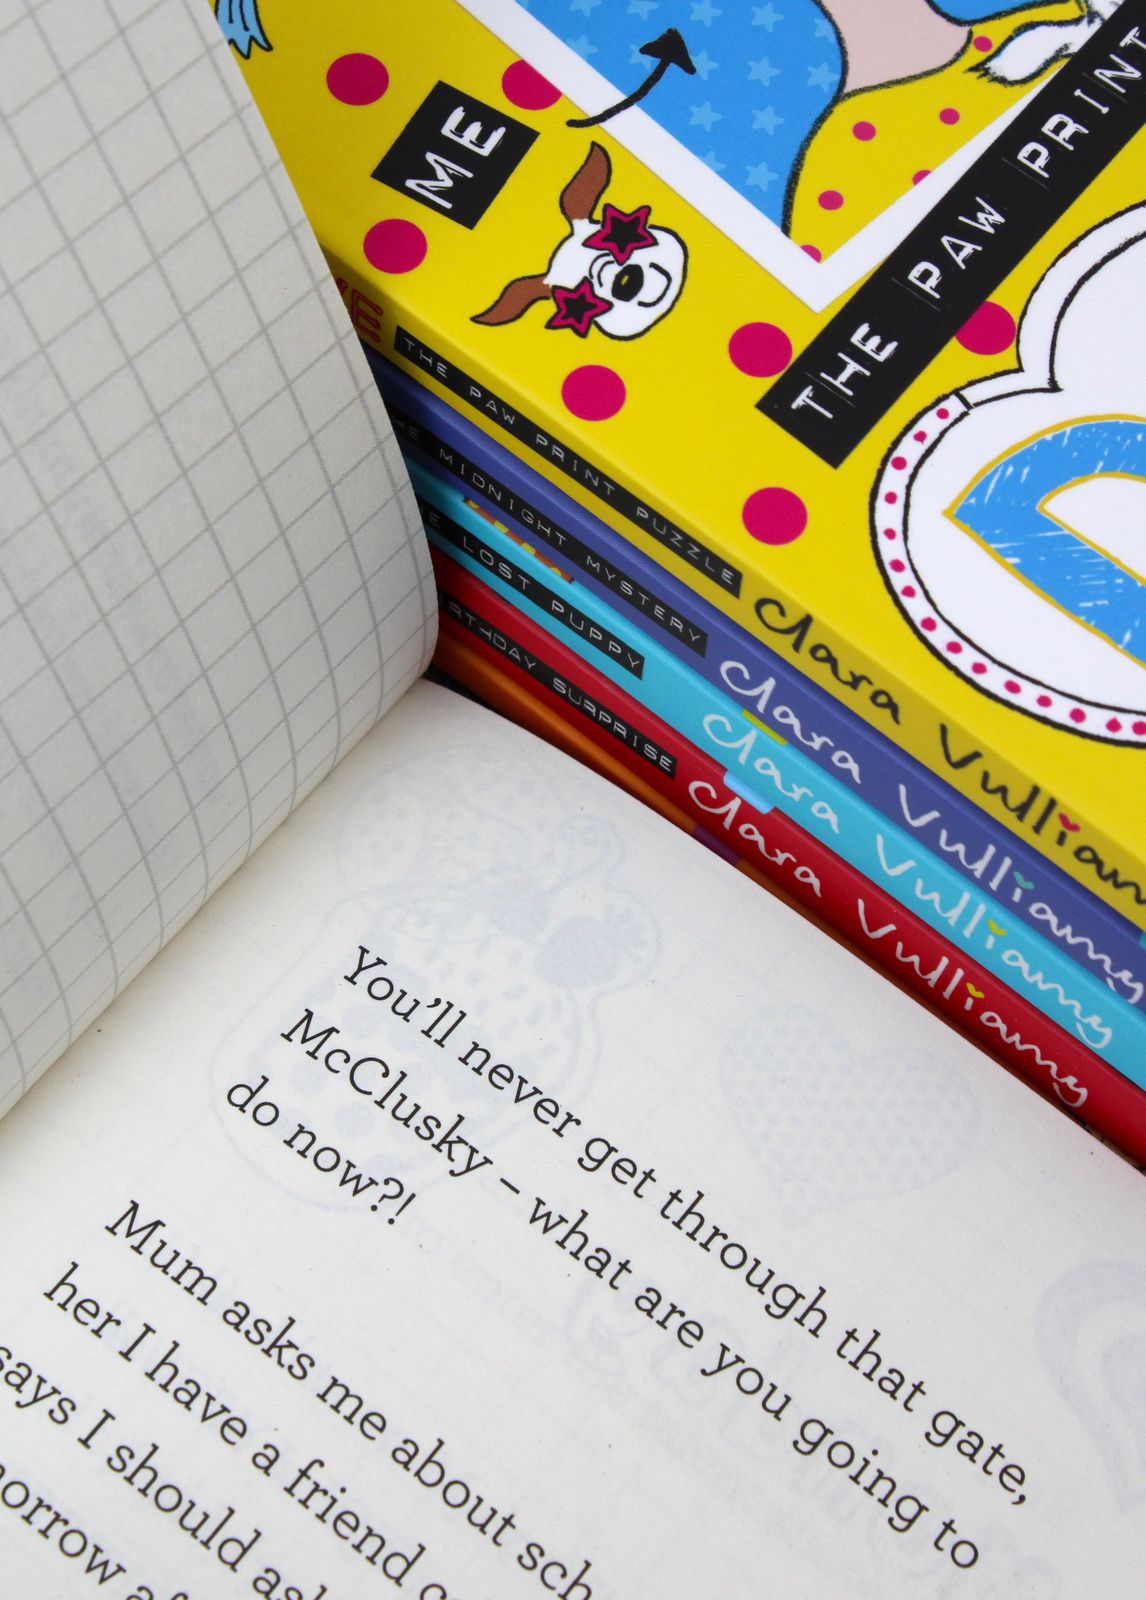 ME
THE PAW PRINT
THE PAW PRINT PUZZLE Clara Vulliam
MIDNIGHT MYSTERY Clara Vulliamy
LOST PUPPY Clara Vulliamy
RTHDAY SURPRISE Clara Vulliamy
You'll never get through that gate,
McClusky – what are you going to
do now?!
Mum asks me about sch
her I have a friend c
says I should as
orrow a